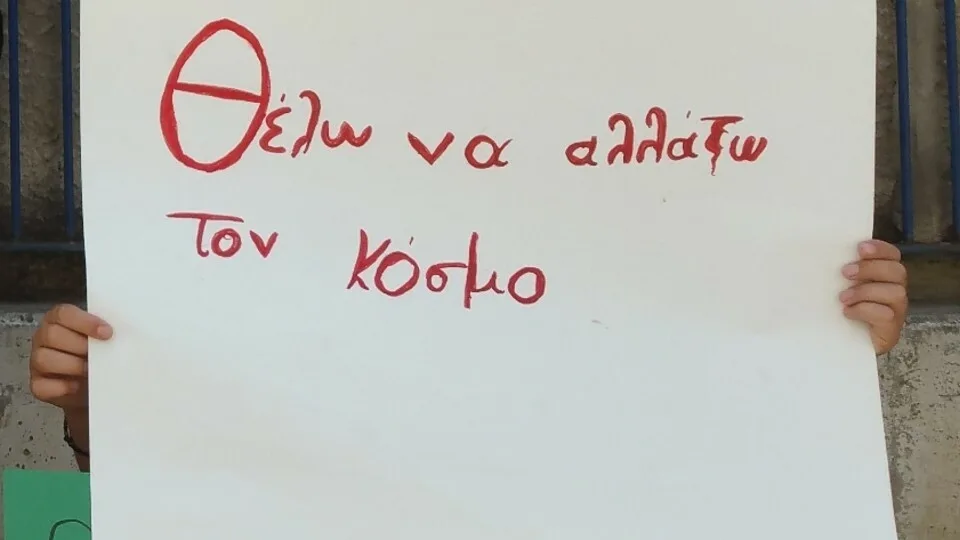 Θέλω να αλλάξω
τον κόσμο